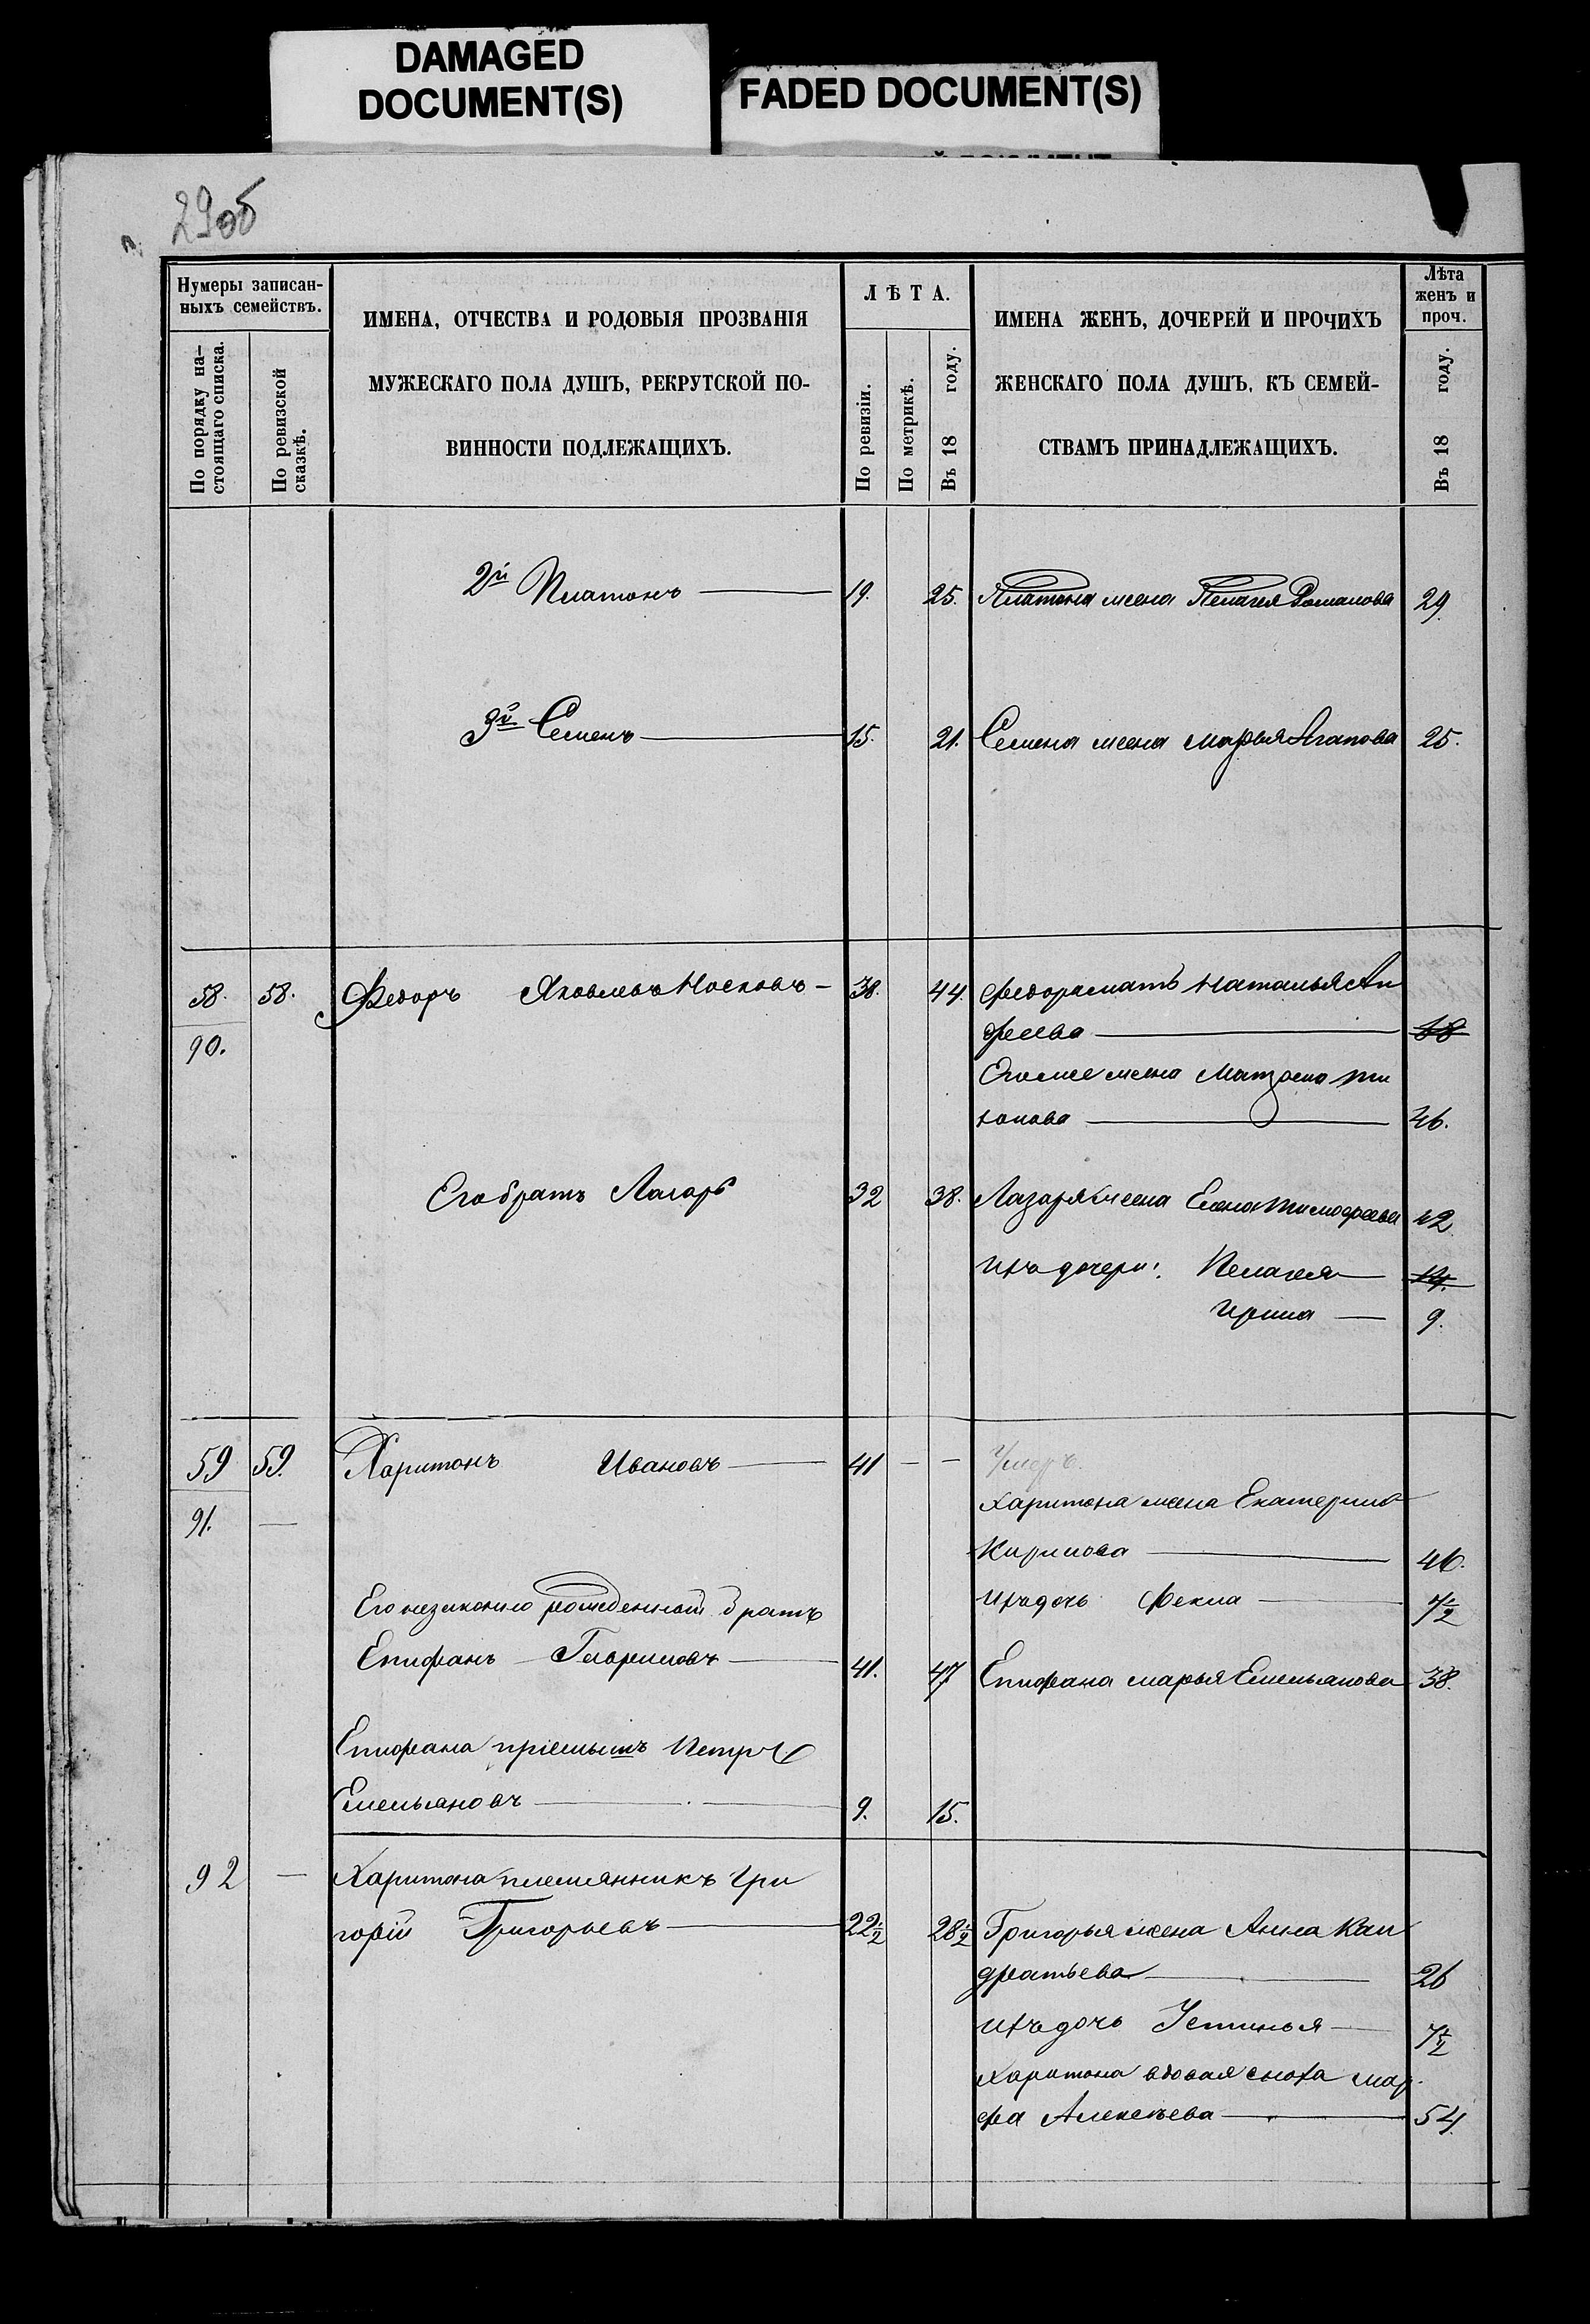 DAMAGED
DOCUMENT(S)
FADED DOCUMENT(S)
29об
Нумеры записан-
ныхъ семействъ.
По порядку на-
стоящаго списка.
По ревизской
сказкѣ.
ИМЕНА, ОТЧЕСТВА И РОДОВЫЯ ПРОЗВАНІЯ
МУЖЕСКАГО ПОЛА ДУШЪ, РЕКРУТСКОЙ ПО-
ВИННОСТИ ПОДЛЕЖАЩИХЪ.
ЛѢТА.
По ревизіи.
По метрикѣ.
Въ 18 году.
ИМЕНА ЖЕНЪ, ДОЧЕРЕЙ И ПРОЧИХЪ
ЖЕНСКАГО ПОЛА ДУШЪ, КЪ СЕМЕЙ-
СТВАМЪ ПРИНАДЛЕЖАЩИХЪ.
Лѣта
женъ и
проч.
Въ 18 году.
2й Платонъ — 19. 25. Платона жена Пелагея Романова 29.
3й Семенъ — 15. 21. Семена жена Марья Агапова 25.
58. 58. Федоръ Яковлевъ Носковъ — 38. 44. Федора мать Наталья Ан
90. дреева — 68
Его же жена Матрена Ти
хонова — 46.
Его братъ Лазарь 32 38. Лазаря жена Елена Тимофеева 42.
Ихъ дочери: Пелагея — 14.
Ирина — 9.
59 59. Харитонъ Ивановъ — 41 — — Умеръ.
91. — Харитона жена Екатерина
Кирилова — 46.
Его незаконно рожденный братъ
Ихъ дочь Фекла — 7 1/2
Епифанъ Гавриловъ — 41. 47 Епифана Марья Емельянова 38.
Епифана пріемышъ Петръ
Емельяновъ — 9. 15.
92 — Харитона племянникъ Гри
горій Григорьевъ — 22 1/2 28 1/2 Григорья жена Анна Кан
дратьева — 26
Ихъ дочь Устинья — 7 1/2
Харитона вдовая сноха Мар
фа Алексѣева — 54.